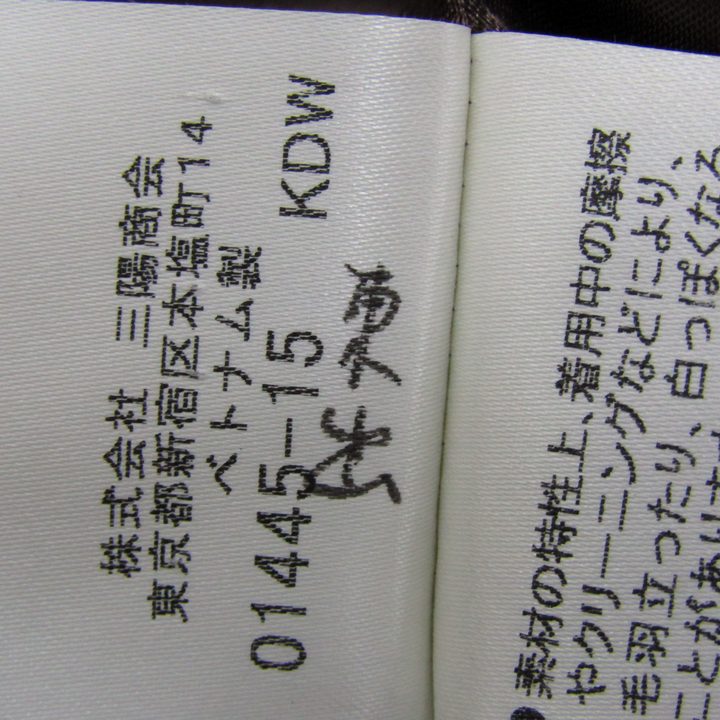 株式会社 三陽商会
東京都新宿区本塩町14
ベトナム製
01445-15 KDW
●素材の特性上、着用中の摩擦
やクリーニングなどにより、
毛羽立ったり、白っぽくなる
ことがあります